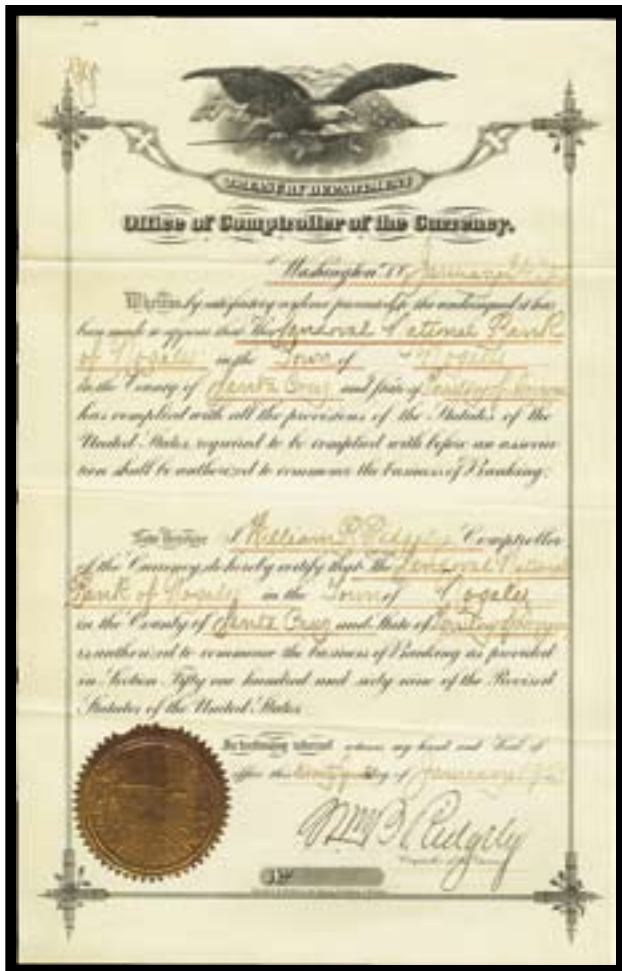 TREASURY DEPARTMENT
Office of Comptroller of the Currency.
Washington, D.C. January
Whereas, by satisfactory evidence presented to the undersigned, it has
been made to appear that The Sandoval National Bank
of Nogales in the Town of Nogales
in the County of Santa Cruz and State of
has complied with all the provisions of the Statutes of the
United States, required to be complied with before an association
shall be authorized to commence the business of Banking;
Now Therefore I William B. Ridgely, Comptroller
of the Currency, do hereby certify that The Sandoval National
Bank of Nogales in the Town of Nogales
in the County of Santa Cruz and State of
is authorized to commence the business of Banking as provided
in Section Fifty one hundred and sixty nine of the Revised
Statutes of the United States.
In testimony whereof witness my hand and Seal of
office this day of January
Wm B Ridgely
Comptroller of the Currency